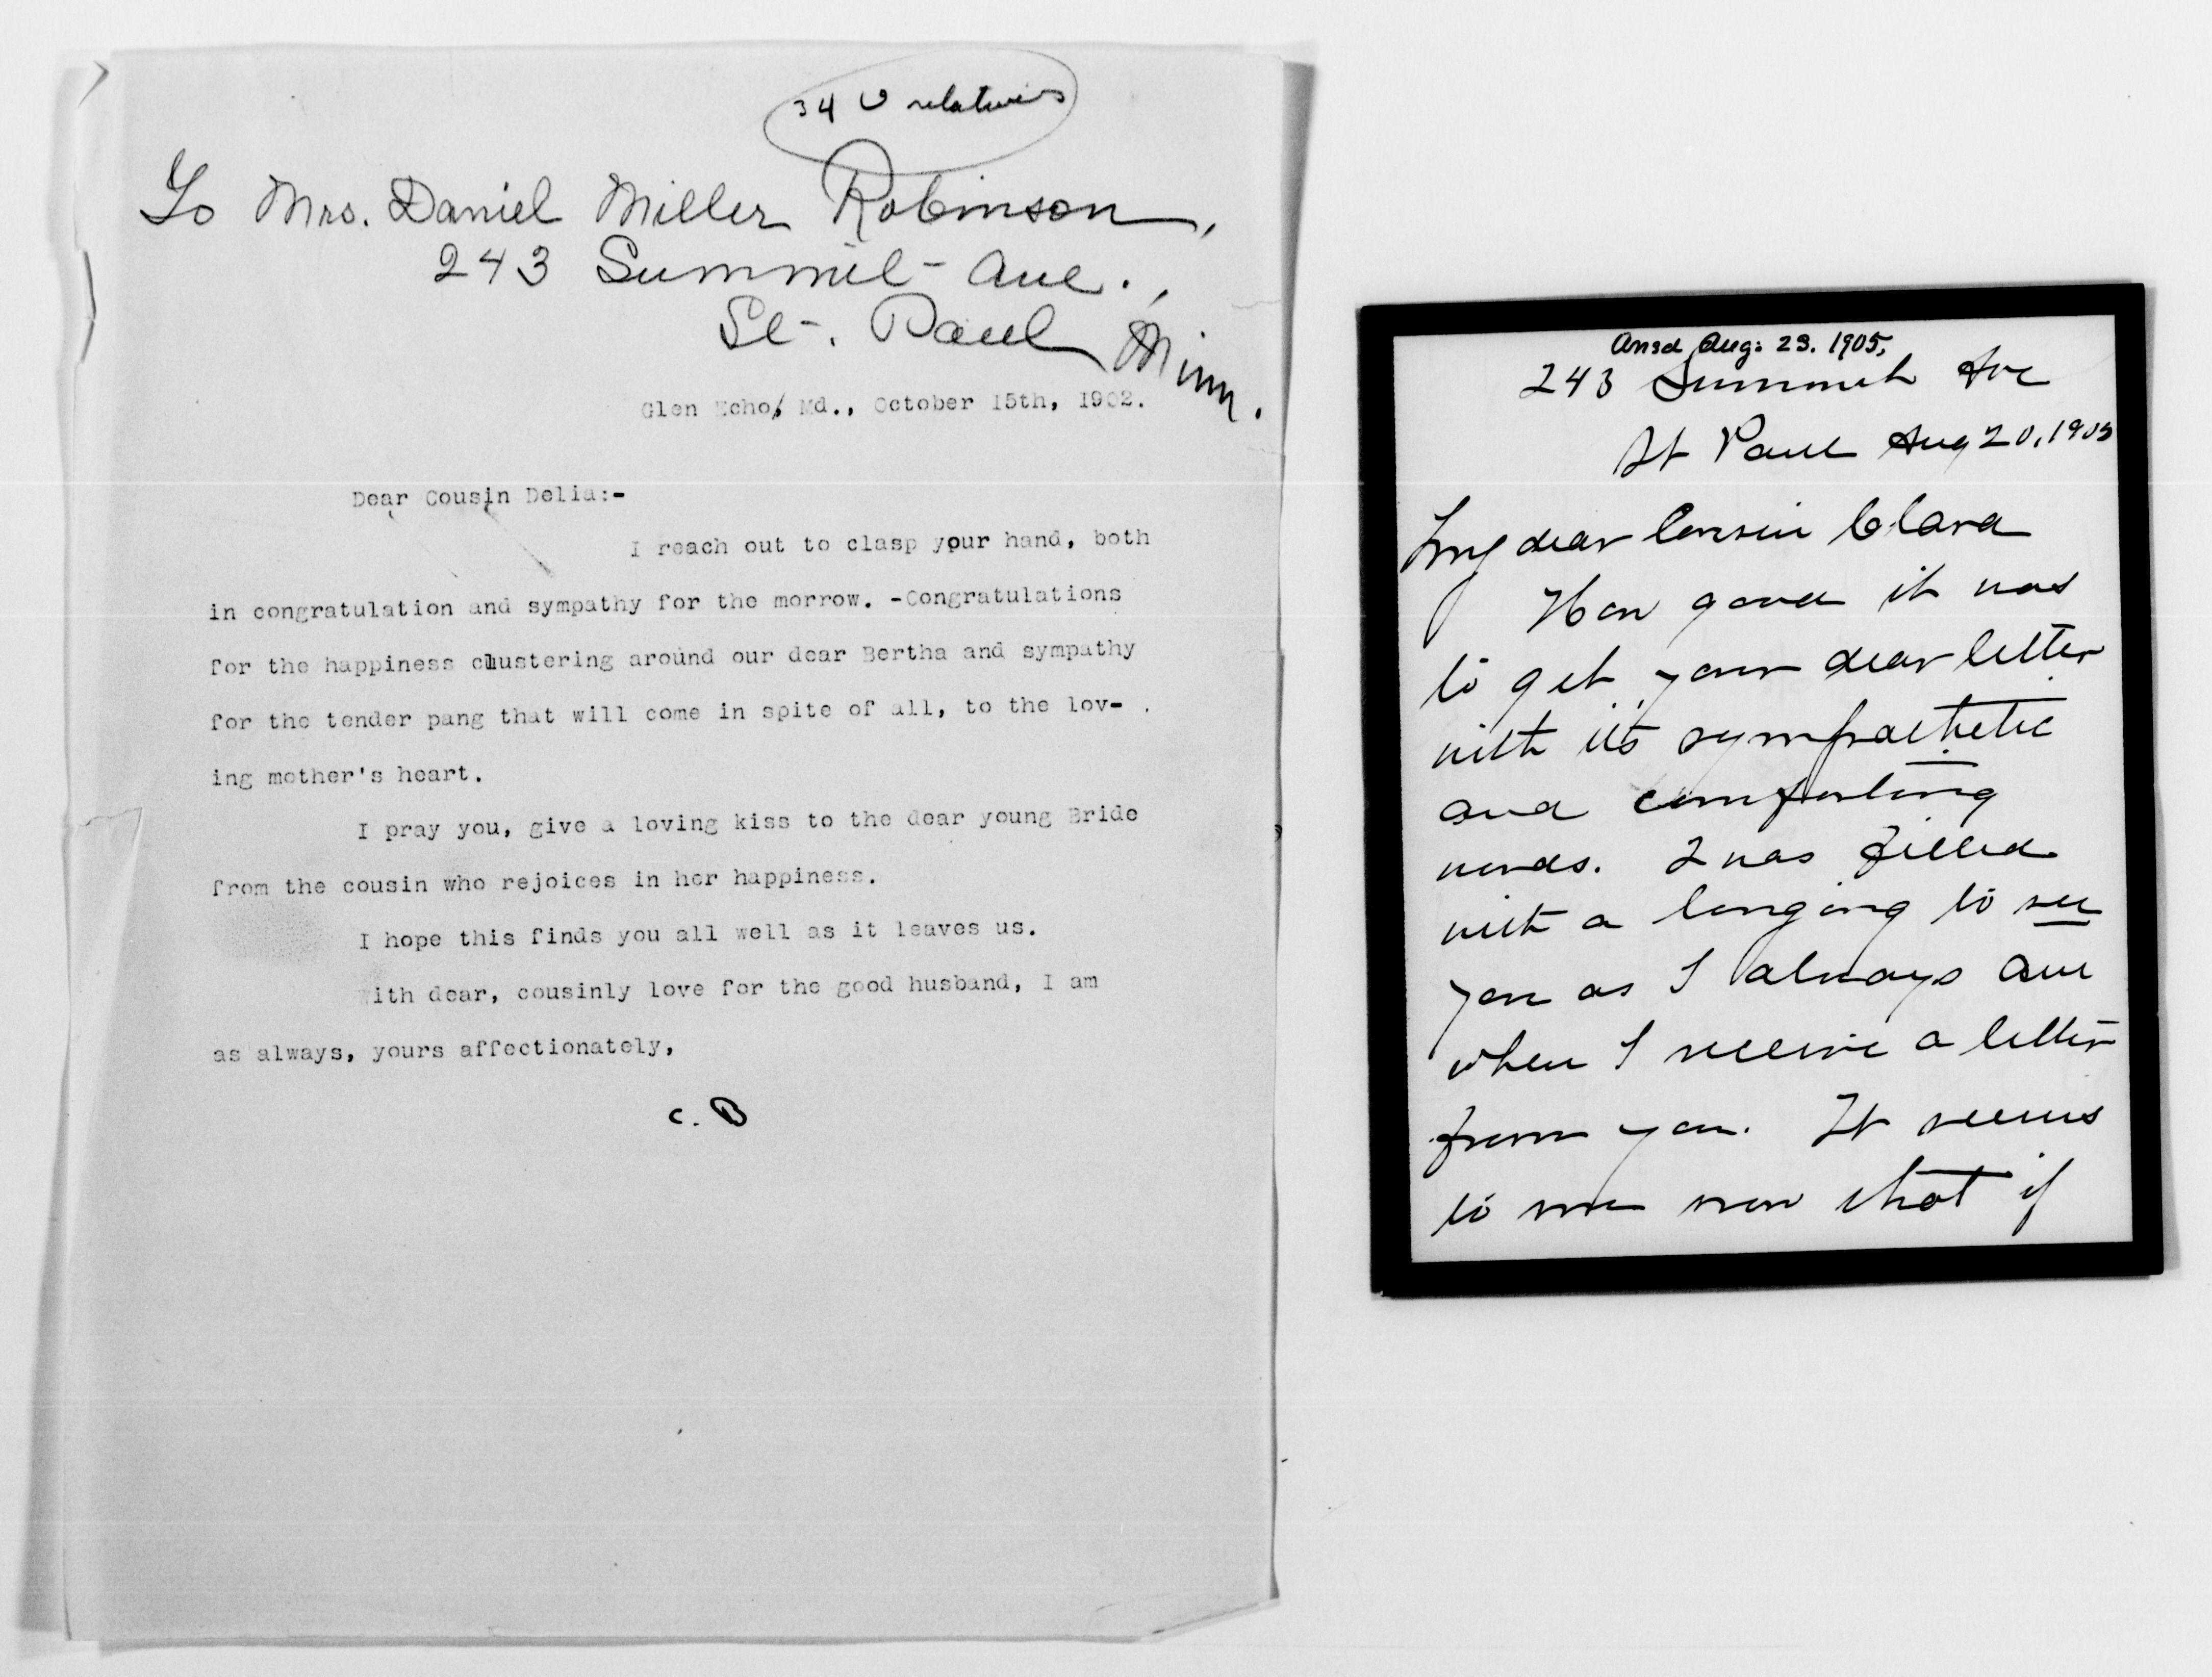 34 U relatives
To Mrs. Daniel Miller Robinson,
243 Summit Ave.,
St. Paul Minn.
Glen Echo, Md., October 15th, 1902.
Dear Cousin Delia:-
I reach out to clasp your hand, both
in congratulation and sympathy for the morrow. -Congratulations
for the happiness clustering around our dear Bertha and sympathy
for the tender pang that will come in spite of all, to the lov-
ing mother's heart.
I pray you, give a loving kiss to the dear young Bride
from the cousin who rejoices in her happiness.
I hope this finds you all well as it leaves us.
With dear, cousinly love for the good husband, I am
as always, yours affectionately,
C. B
Ansd Aug: 23. 1905,
243 Summit Ave
St Paul Aug 20, 1905
My dear Cousin Clara
How good it was
to get your dear letter
with its sympathetic
and comforting
words. I was filled
with a longing to see
you as I always am
when I receive a letter
from you. It seems
to me now that if